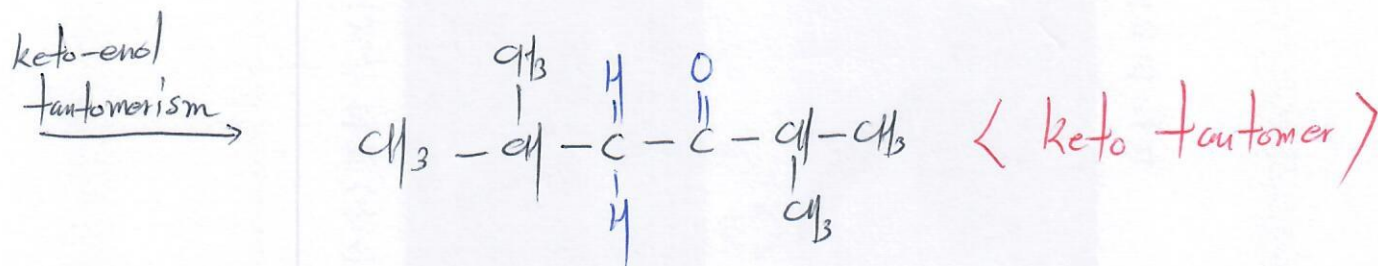 keto-enol
tautomerism
CH3 H O
CH3 - CH - C - C - CH - CH3 < keto tautomer >
H CH3